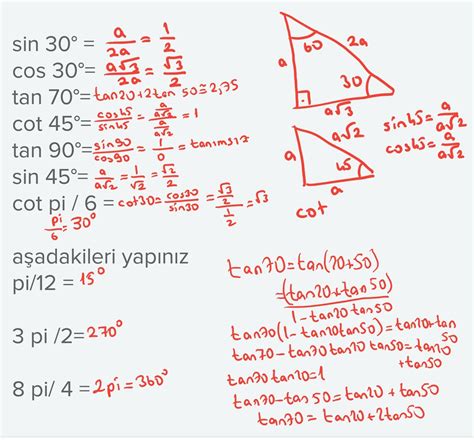 sin 30° = a/2a = 1/2
cos 30° = a√3/2a = √3/2
tan 70° = tan20+2tan 50 ≅ 2,75
cot 45° = cos45/sin45 = a/a√2 / a/a√2 = 1
tan 90° = sin90/cos90 = 1/0 = tanımsız
sin 45° = a/a√2 = 1/√2 = √2/2
cot pi / 6 = cot30 = cos30/sin30 = √3/2 / 1/2 = √3
pi/6 = 30°
60
2a
a
30
a√3
a√2
a
45
a
sin45 = a/a√2
cos45 = a/a√2
cot
aşadakileri yapınız
pi/12 = 15°
3 pi /2= 270°
8 pi/ 4 = 2pi = 360°
tan70 = tan(20+50)
= (tan20+tan50)/1-tan20tan50
tan70(1-tan20tan50) = tan20+tan50
tan70-tan70tan20tan50 = tan20+tan50
tan70tan20=1
tan70-tan50 = tan20+tan50
tan70 = tan20+2tan50